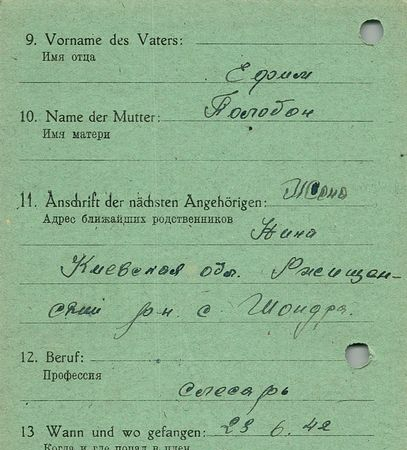 9. Vorname des Vaters:
Имя отца
Ефим
10. Name der Mutter: Полобон
Имя матери
11. Anschrift der nächsten Angehörigen: Жена
Адрес ближайших родственников
Нина
Киевская обл. Ржищан-
ский р-н. с Шандра.
12. Beruf:
Профессия
слесарь
13 Wann und wo gefangen: 23 6. 42
Когда и где попал в плен